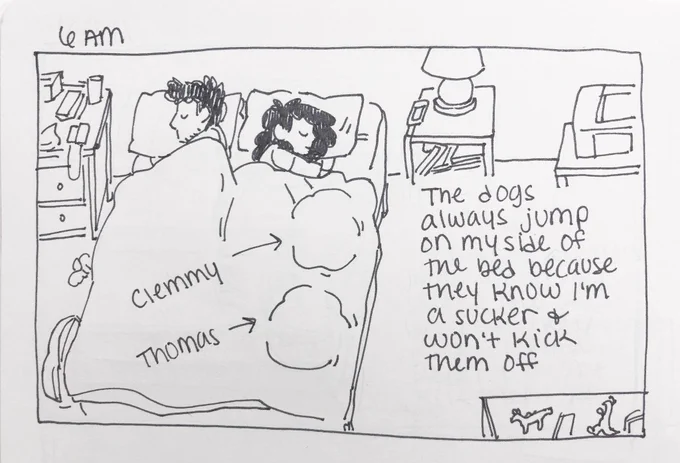 6 AM
The dogs
always jump
on my side of
the bed because
they know I'm
a sucker &
won't kick
them off
Clemmy
Thomas